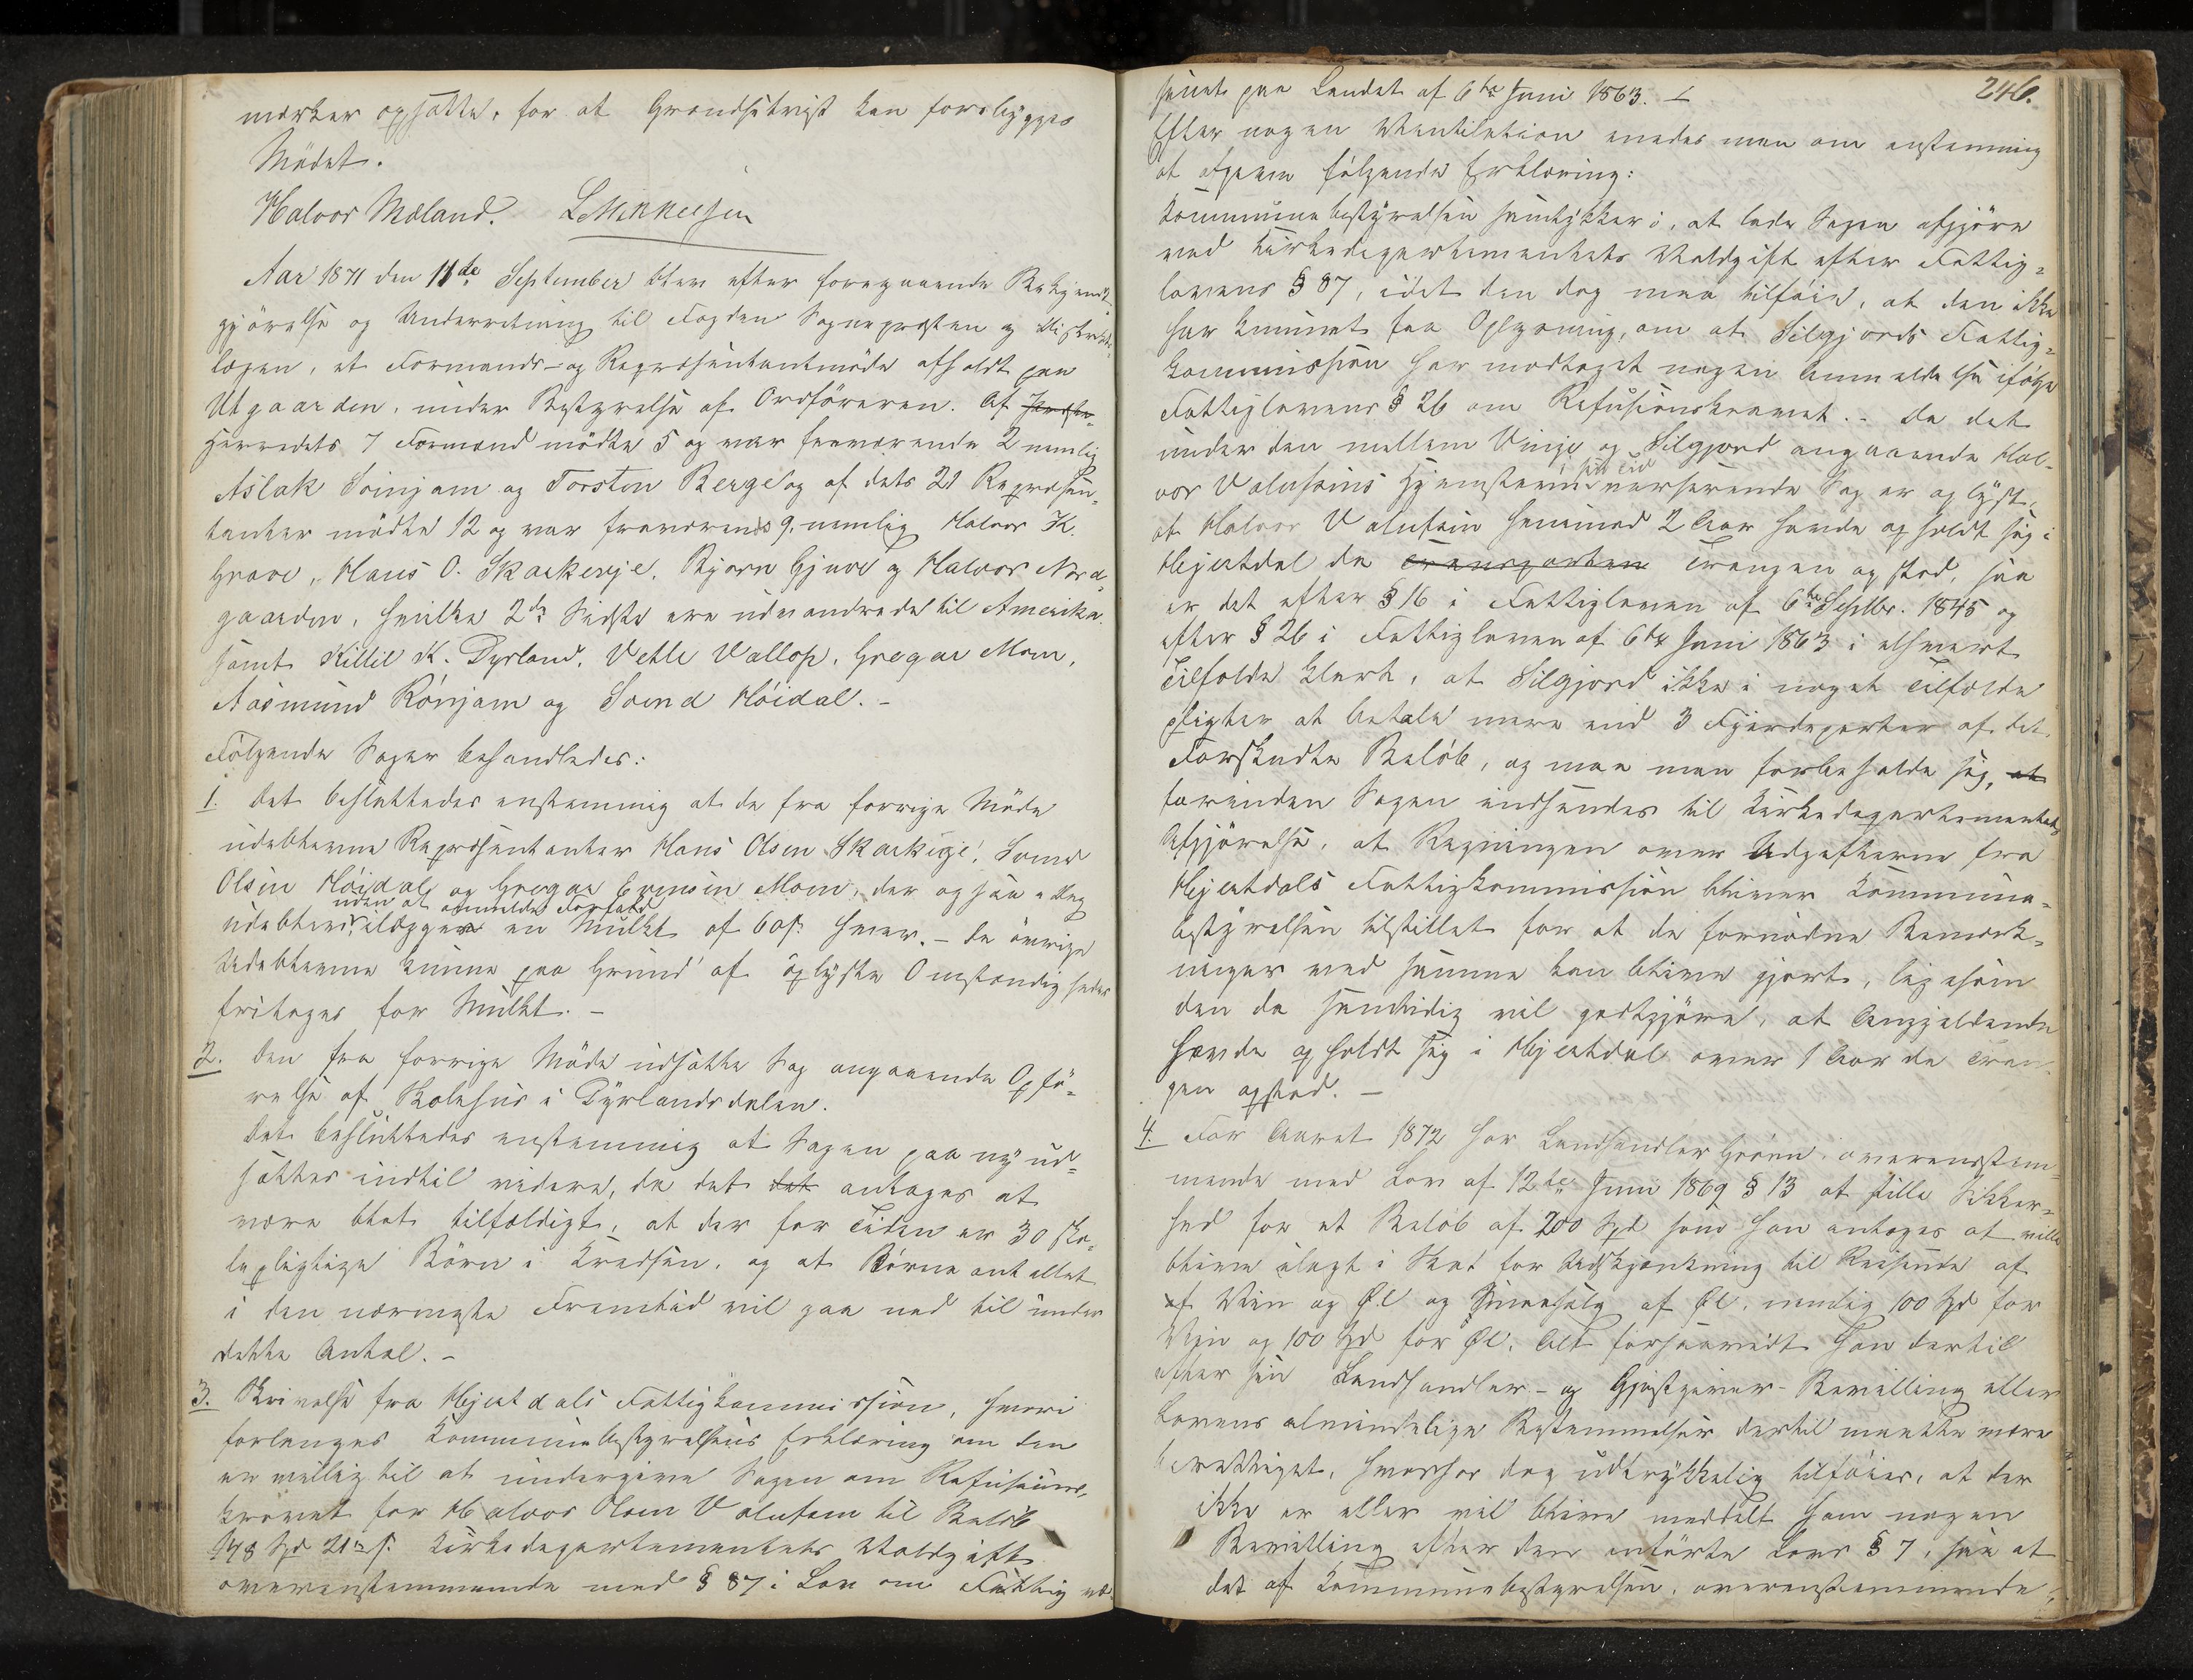 mærker opsatte, for at Grændsetvist kan forebygges
Mødet.
Halvor Mæland. L Mikkelsen
Aar 1871 den 11te September blev efter foregaaende Bekjendt-
gjörelse og Underretning til Fogden Sognepræsten og Distrikts-
lægen, et Formands- og Repræsentantmöde afholdt paa
Utgaarden, under Bestyrelse af Ordföreren. Af
Herredets 7 Formænd mödte 5 og var fraværende 2 nemlig
Aslak Sveinjam og Torsten Berge og af dets 21 Repræsen-
tanter mödte 12 og var fraværende 9, nemlig Halvor K.
Grave, Hans O. Skarkeije, Bjørn Gjuve og Halvor Nord-
gaarden, hvilke 2de Sidste ere udvandrede til Amerika
samt Killil K. Dyrland, Vetle Vallop, Gregar Moen,
Aasmund Rönjam og Svend Höidal. -
Følgende Sager behandledes:
1. Det besluttedes enstemmig at de fra forrige Möde
udeblevne Repræsentanter Hans Olsen Skarkeije, Svend
Olsen Höidal og Gregar Evensen Moen, der ogsaa i Dag
uden at anmelde Forfald
udeblev, ilægges en Mulkt af 60 s. hver. - De övrige
Udeblevne kunne paa Grund af oplyste Omstændigheder
fritages for Mulkt. -
2. Den fra forrige Möde udsatte Sag angaaende Opfö-
relse af Skolehus i Dyrlandsdalen.
Det besluttedes enstemmig at Sagen paa ny ud-
sættes indtil videre, da det det antages at
være blot tilfældigt, at der for Tiden er 30 sko-
lepligtige Börn i Kredsen, og at Börneantallet
i den nærmeste Fremtid vil gaa ned til under
dette Antal. -
3. Skrivelse fra Hjertdals Fattigkommission, hvori
forlanges Kommunebestyrelsens Erklæring om den
er villig til at undergive Sagen om Refusions-
kravet for Halvor Olsen Valufsen til Belöb
148 Spd 21 s. Kirkedepartementets Voldgift
overensstemmende med § 87 i Lov om Fattigvæ-
246.
senet paa Landet af 6te Juni 1863. -
Efter nogen Ventilation enedes man om enstemmig
at afgive fölgende Erklæring:
Kommunebestyrelsen samtykker i, at lade Sagen afgjöre
ved Kirkedepartementets Voldgift efter Fattig-
lovens § 87, idet den dog maa tilföie, at den ikke
har kunnet faa Oplysning, om at Silgjords Fattig-
kommission har modtaget nogen Anmeldelse ifölge
Fattiglovens § 26 om Refusionskravet. - Da det
under den mellem Vinje og Silgjord angaaende Hal-
sin Tid
vor Valufsens Hjemstavn verserende Sag er oplyst,
at Halvor Valufsen henimod 2 Aar havde opholdt sig i
Hjertdal da Transporten Trangen opstod, saa
er det efter § 16 i Fattigloven af 6te Septbr. 1845 og
efter § 26 i Fattigloven af 6te Juni 1863 i ethvert
Tilfælde klart, at Silgjord ikke i noget Tilfælde
pligter at betale mere end 3 Fjerdeparter af det
Forskudte Belöb, og maa man forbeholde sig, at
forinden Sagen indsendes til Kirkedepartementets
Afgjörelse, at Regningen over Udgifterne fra
Hjertdals Fattigkommission bliver Kommune-
bestyrelsen tilstillet for at de fornödne Bemærk-
ninger ved samme kan blive gjort, ligesom
den da samtidig vil godtgjöre, at Angjældende
havde opholdt sig i Hjertdal over 1 Aar da Tran-
gen opstod. -
4. For Aaret 1872 har Landhandler Gröen overensstem-
mende med Lov af 12te Juni 1869 § 13 at stille Sikker-
hed for et Belöb af 200 Spd som han antages at ville
blive ilagt i Skat for Udskjænkning til Reisende af
af Viin og Øl og Smaasalg af Øl, nemlig 100 Spd for
Viin og 100 Spd for Øl, Alt forsaavidt han dertil
efter sin Landhandler- og Gjæstgiver-Bevilling eller
Lovens almindelige Bestemmelser dertil maatte være
berettiget, hvorhos dog udtrykkelig tilföies, at der
ikke er eller vil blive meddelt ham nogen
Bevilling efter den anförte Lovs § 7, saa at
det af Kommunebestyrelsen, overensstemmende